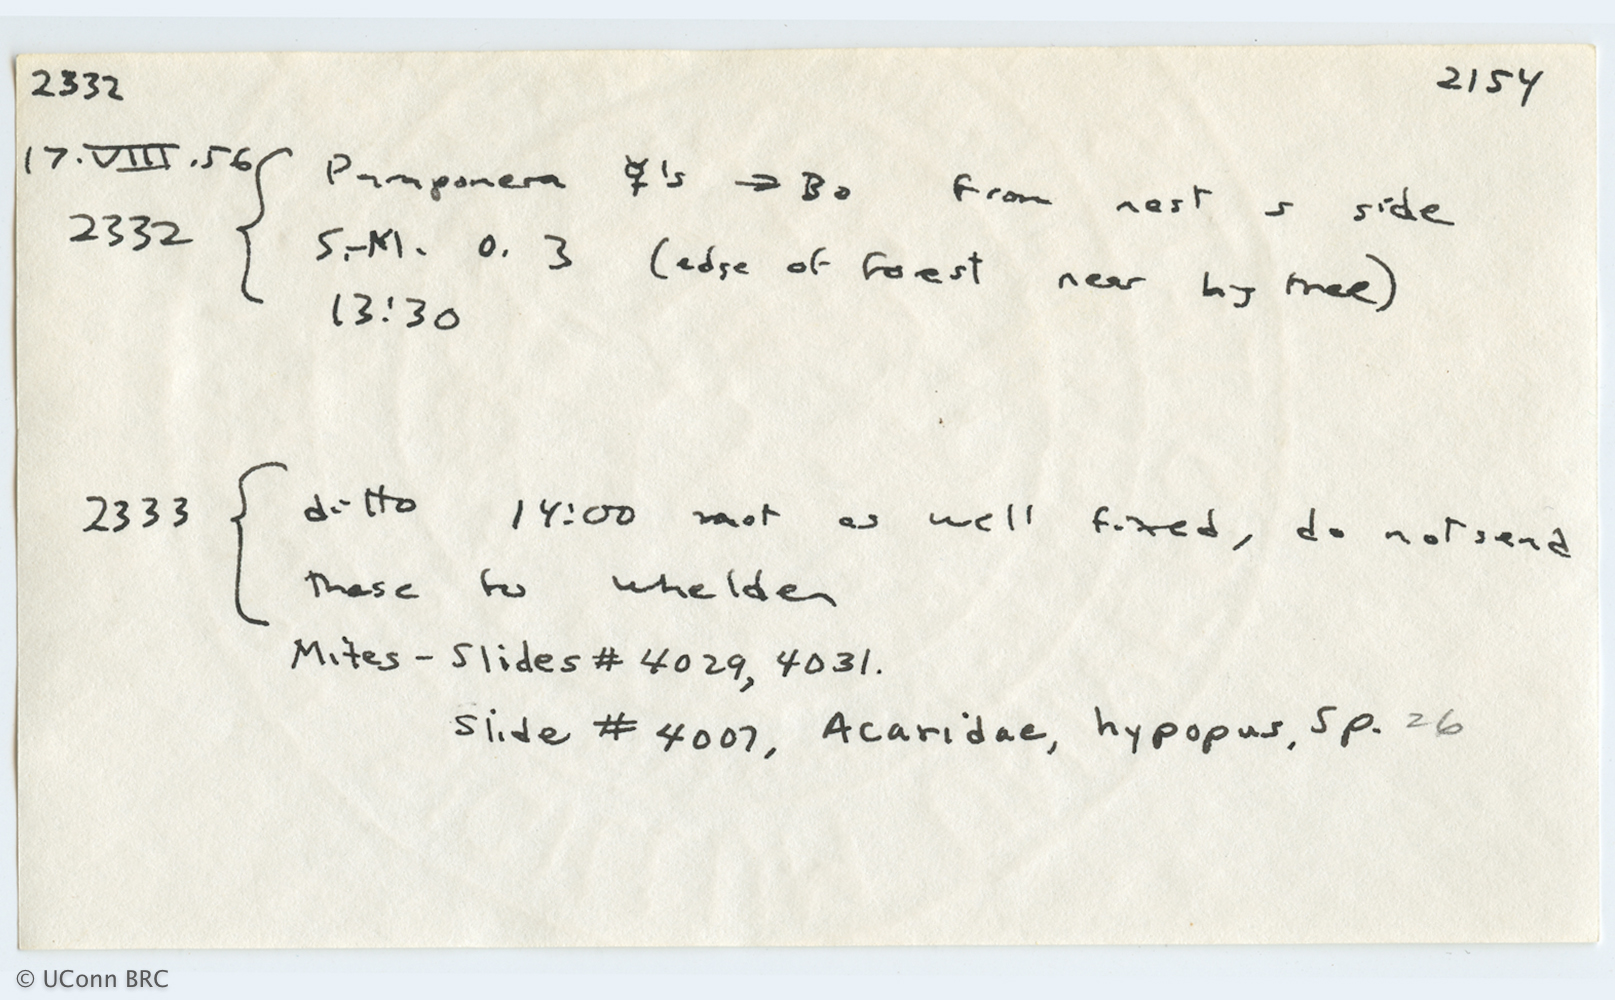 2332 2154
17.VIII.56 Paraponera ☿'s → Bo from nest s side
2332 S.-M. 0.3 (edge of forest near big tree)
13:30
2333 ditto 14:00 not as well fixed, do not send
these to Whelden
Mites - Slides # 4029, 4031.
Slide # 4007, Acaridae, hypopus, Sp. 26
© UConn BRC